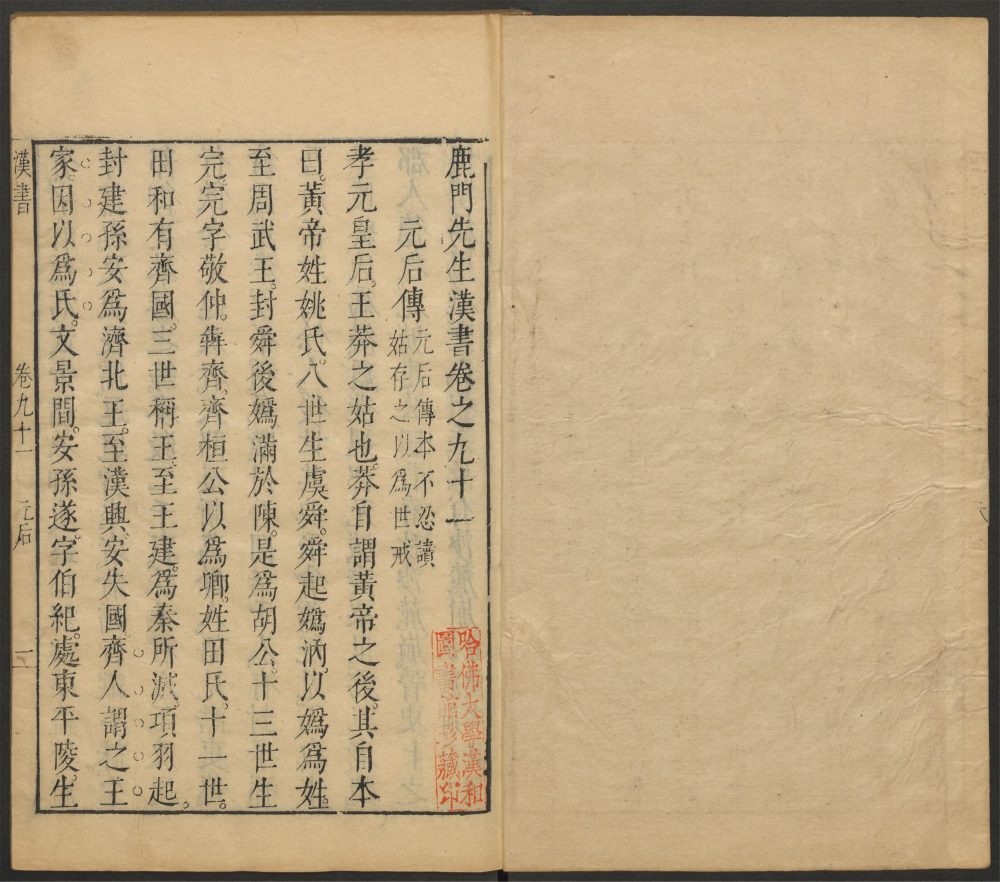 鹿門先生漢書卷之九十一
元后傳
元后傳本不忍讀
姑存之以爲世戒
孝元皇后。王莽之姑也。莽自謂黃帝之後。其自本
曰。黃帝姓姚氏。八世生虞舜。舜起嬀汭。以嬀爲姓。
至周武王。封舜後嬀滿於陳。是爲胡公。十三世生
完。完字敬仲。犇齊。齊桓公以爲卿。姓田氏。十一世。
田和有齊國。三世稱王。至王建。爲秦所滅。項羽起。
封建孫安爲濟北王。至漢興。安失國。齊人謂之王
家。因以爲氏。文景間。安孫遂。字伯紀。處東平陵。生
漢書
卷九十一
元后
一
哈佛大學漢和
圖書館珍藏印